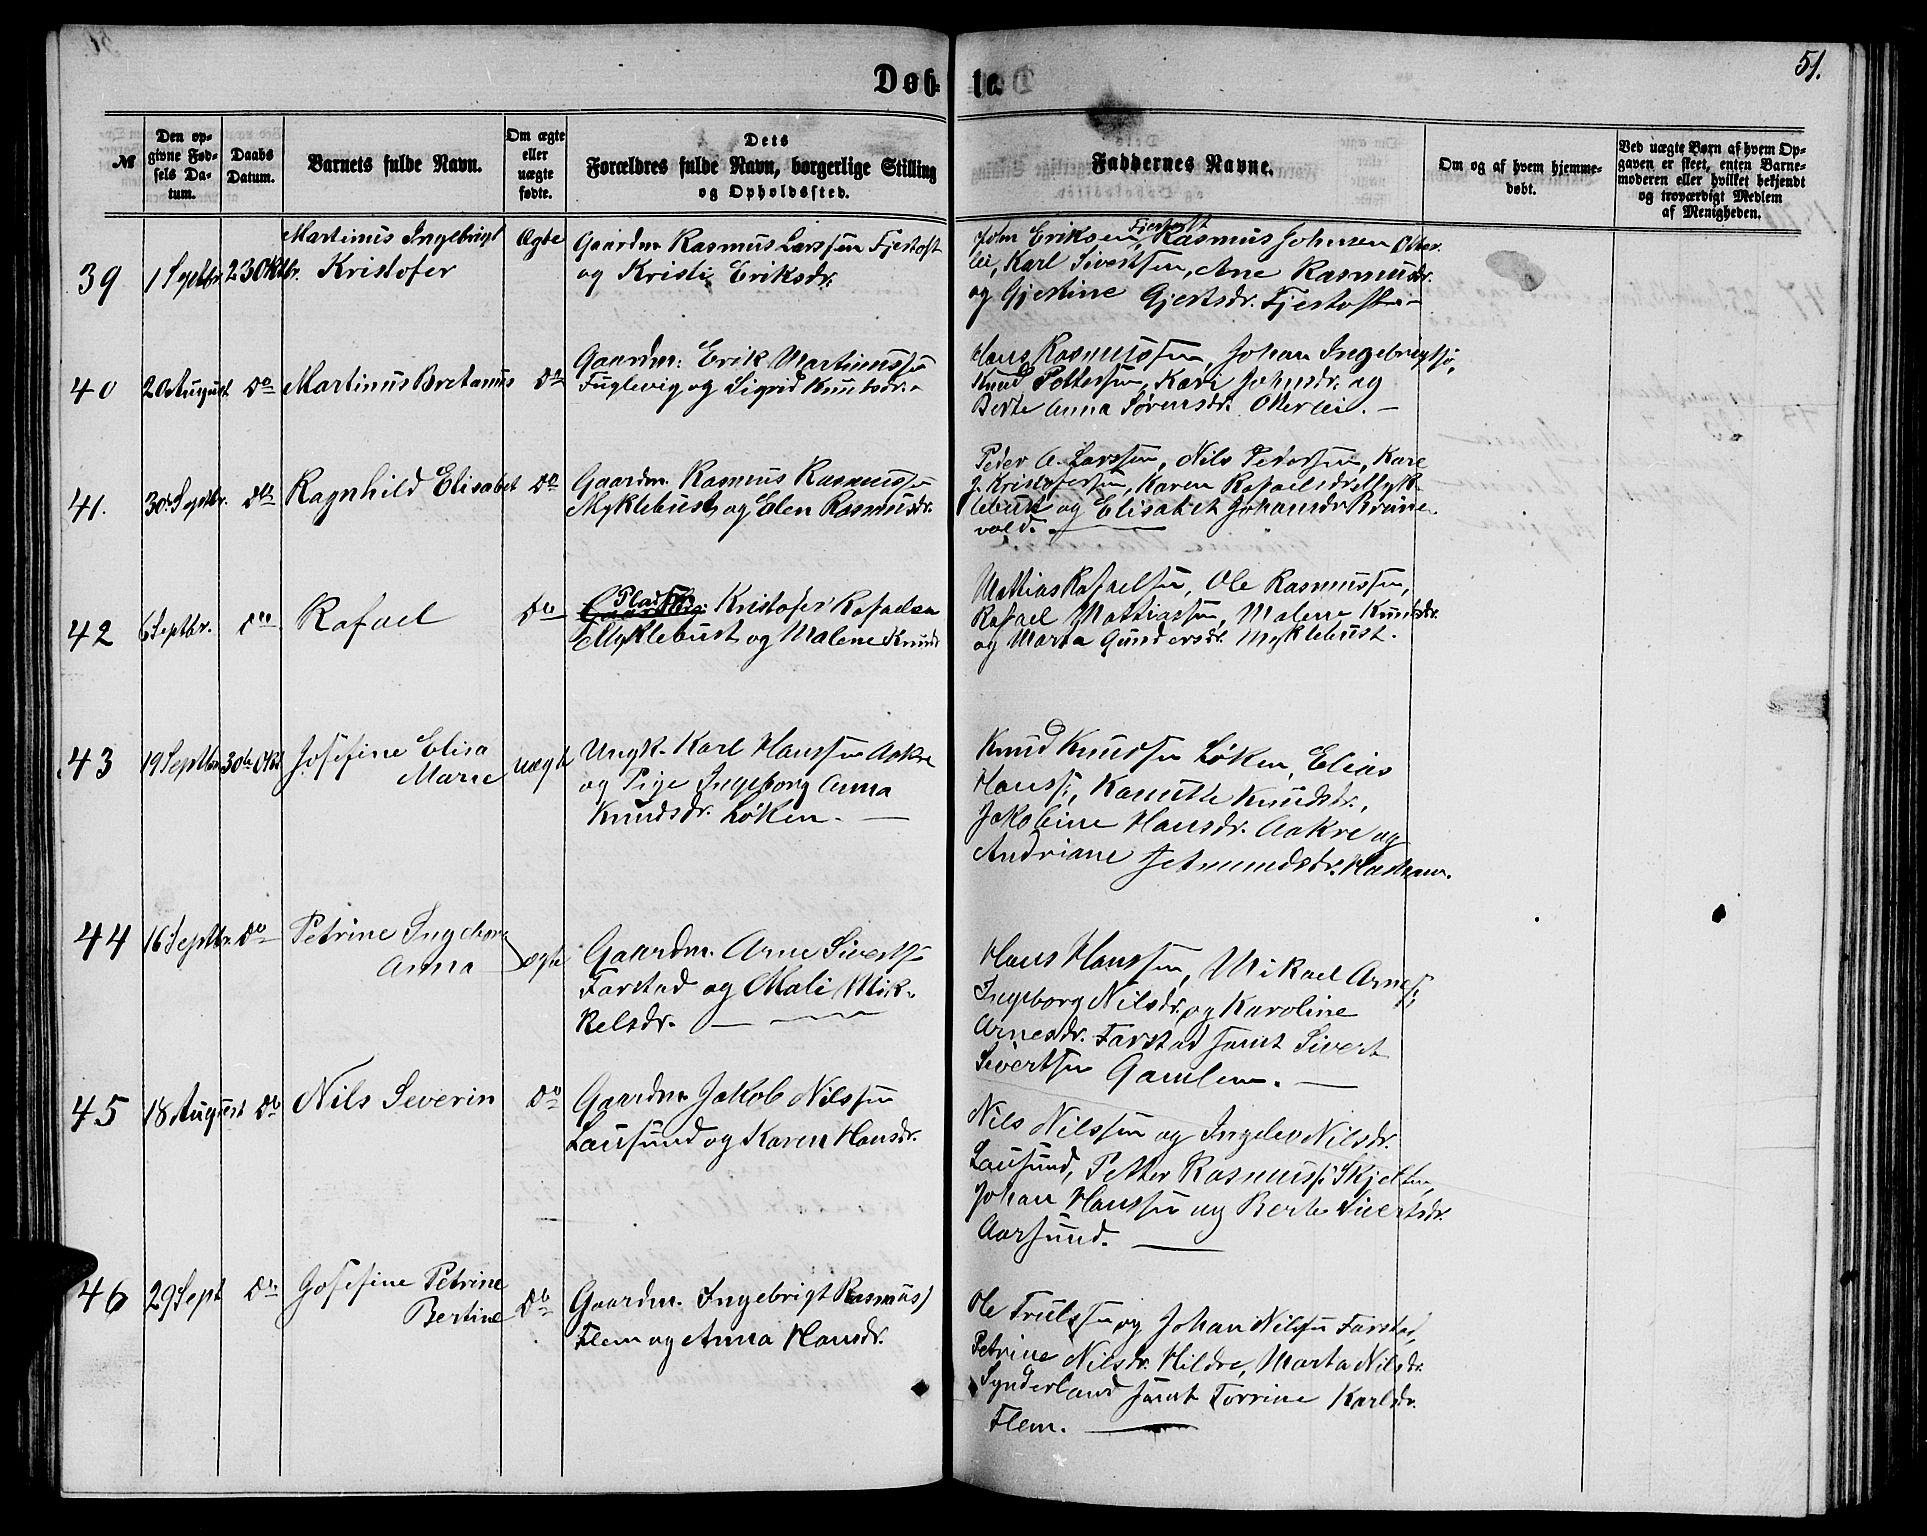 51.
Døb- te.
№
Den op-
givne Fød-
sels Da-
tum.
Daabs
Datum.
Barnets fulde Navn.
Om ægte
eller
uægte
fødte.
Dets
Forældres fulde Navn, borgerlige Stilling
og Opholdssted.
Faddernes Navne.
Om og af hvem hjemme-
døbt.
Ved uægte Børn af hvem Op-
gaven er skeet, enten Barne-
moderen eller hvilket bekjendt
og troværdigt Medlem
af Menigheden.
39 1 Septbr. 23 Oktbr.
Martinus Ingebrigt
Kristofer
Ægte
Gaardm. Rasmus Larssen Fjertoft
og Kristi Eriksdr.
John Eriksen Fjertoft, Rasmus Johnsen Otter-
lei, Karl Sivertsen, Ane Rasmusdr.
og Gjertine Gjertsdr. Fjertoft
40 20 August Do
Martinus Bretanus
Do
Gaardm: Erik Martinussen
Fuglevig og Sigrid Knutsdr.
Hans Rasmussen, Johan Ingebrigts.,
Knud Pettersen, Kari Johnsdr. og
Berte Anna Sørensdr. Otterlei.
41. 30. Septbr. Do
Ragnhild Elisabet
Do
Gaardm. Rasmus Rasmussen
Myklebust og Elen Rasmusdr.
Peder A. Larssen, Nils Pedersen, Karl
J. Kristofersen, Karen Rafaelsdr. Myk-
lebust og Elisabet Johansdr. Brune-
vold.
42 6 Septbr. Do
Rafael
Do
Pladsm. Kristofer Rafaelsen
Myklebust og Malene Knuds
Mattias Rafaelsen, Ole Rasmussen,
Rafael Mattiassen, Malene Knudsdr.
og Marta Gundersdr. Myklebust.
43 19 Septbr. 30te Okt
Josefine Elisa
Marie
uægte
Ungk. Karl Hanssen Aakre
og Pige Ingeborg Anna
Knudsdr. Løken.
Knud Knudsen Løken, Elias
Hanss., Kanutte Knudsdr.,
Jakobine Hansdr. Aakre og
Andriane Hadsam.
44 16 Septbr. Do
Petrine Ingeborg
Anna
ægte
Gaardm. Arne Sivertsen
Farstad og Mali Mik-
kelsdr.
Hans Hanssen, Mikael Arnes.
Ingeborg Nilsdr. og Karoline
Arnesdr. Farstad samt Sivert
Sivertsen Gamlem.
45 18 August Do
Nils Severin
Do
Gaardm. Jakob Nilssen
Lausund og Karen Hansdr.
Nils Nilssen og Ingelev Nilsdr.
Lausund, Petter Rasmuss. Skjelten,
Johan Hanssen og Berte Sivertsdr.
Aarsund.
46 29 Sept Do
Josefine Petrine
Bertine
Do
Gaardm. Ingebrigt Rasmuss
Flem og Anna Hansdr.
Ole Trulssen og Johan Nilssen Farstad,
Petrine Nilsdr. Hildre, Marta Nilsdr.
Synderland samt Torrine Karlsdr.
Flem.